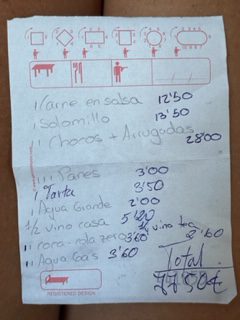 1 Carne en salsa 12'50
1 Solomillo 13'50
1 Choros + Arrugadas 28'00
III Panes 3'00
1 Tarta 3'50
1 Agua Grande 2'00
1/2 vino casa
1 vino
II coca-cola zero 3'60
II Agua Gas 3'60
Total
77'50€
REGISTERED DESIGN